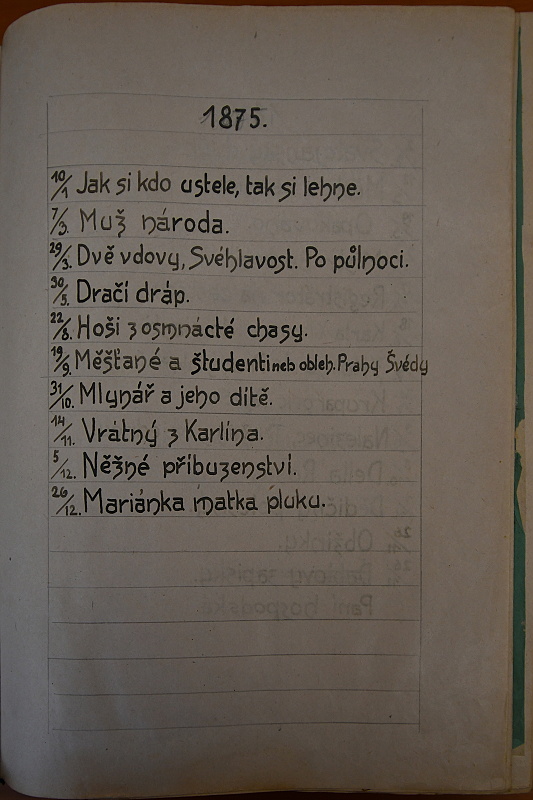 1875.
10/1 Jak si kdo ustele, tak si lehne.
7/3. Muž národa.
29/3. Dvě vdovy, Svéhlavost. Po půlnoci.
30/5. Dračí dráp.
22/8. Hoši z osmnácté chasy.
19/9. Měšťané a študenti neb obleh. Prahy Švédy
31/10. Mlynář a jeho dítě.
14/11. Vrátný z Karlína.
5/12. Něžné příbuzenství.
26/12. Mariánka matka pluku.